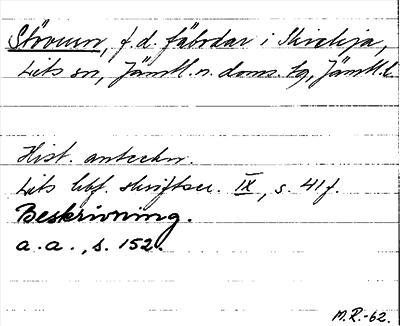 Stövurn, f.d. fäbodar i Skickja,
Lits sn, Jämtl. n. doms. tg, Jämtl. l.
Hist. anteckn.
Lits hbf. skriftser. IX, s. 41 f.
Beskrivning.
a.a., s. 152.
M.R.-62.